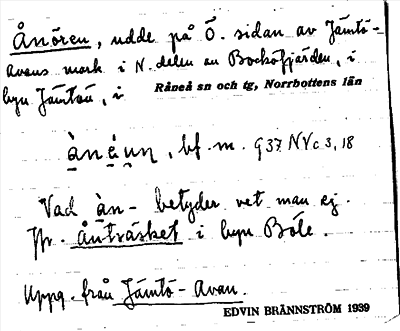 Ånören, udde på Ö. sidan av Jämtö-
avans mark i N. delen av Bocköfjärden, i
byn Jämtön, i Råneå sn och tg, Norrbottens län
bf. m. 937 NV c 3, 18
Vad àn- betyder vet man ej.
Jfr. Ånträsket i byn Böle.
Uppg. från Jämtö-Avan.
EDVIN BRÄNNSTRÖM 1939